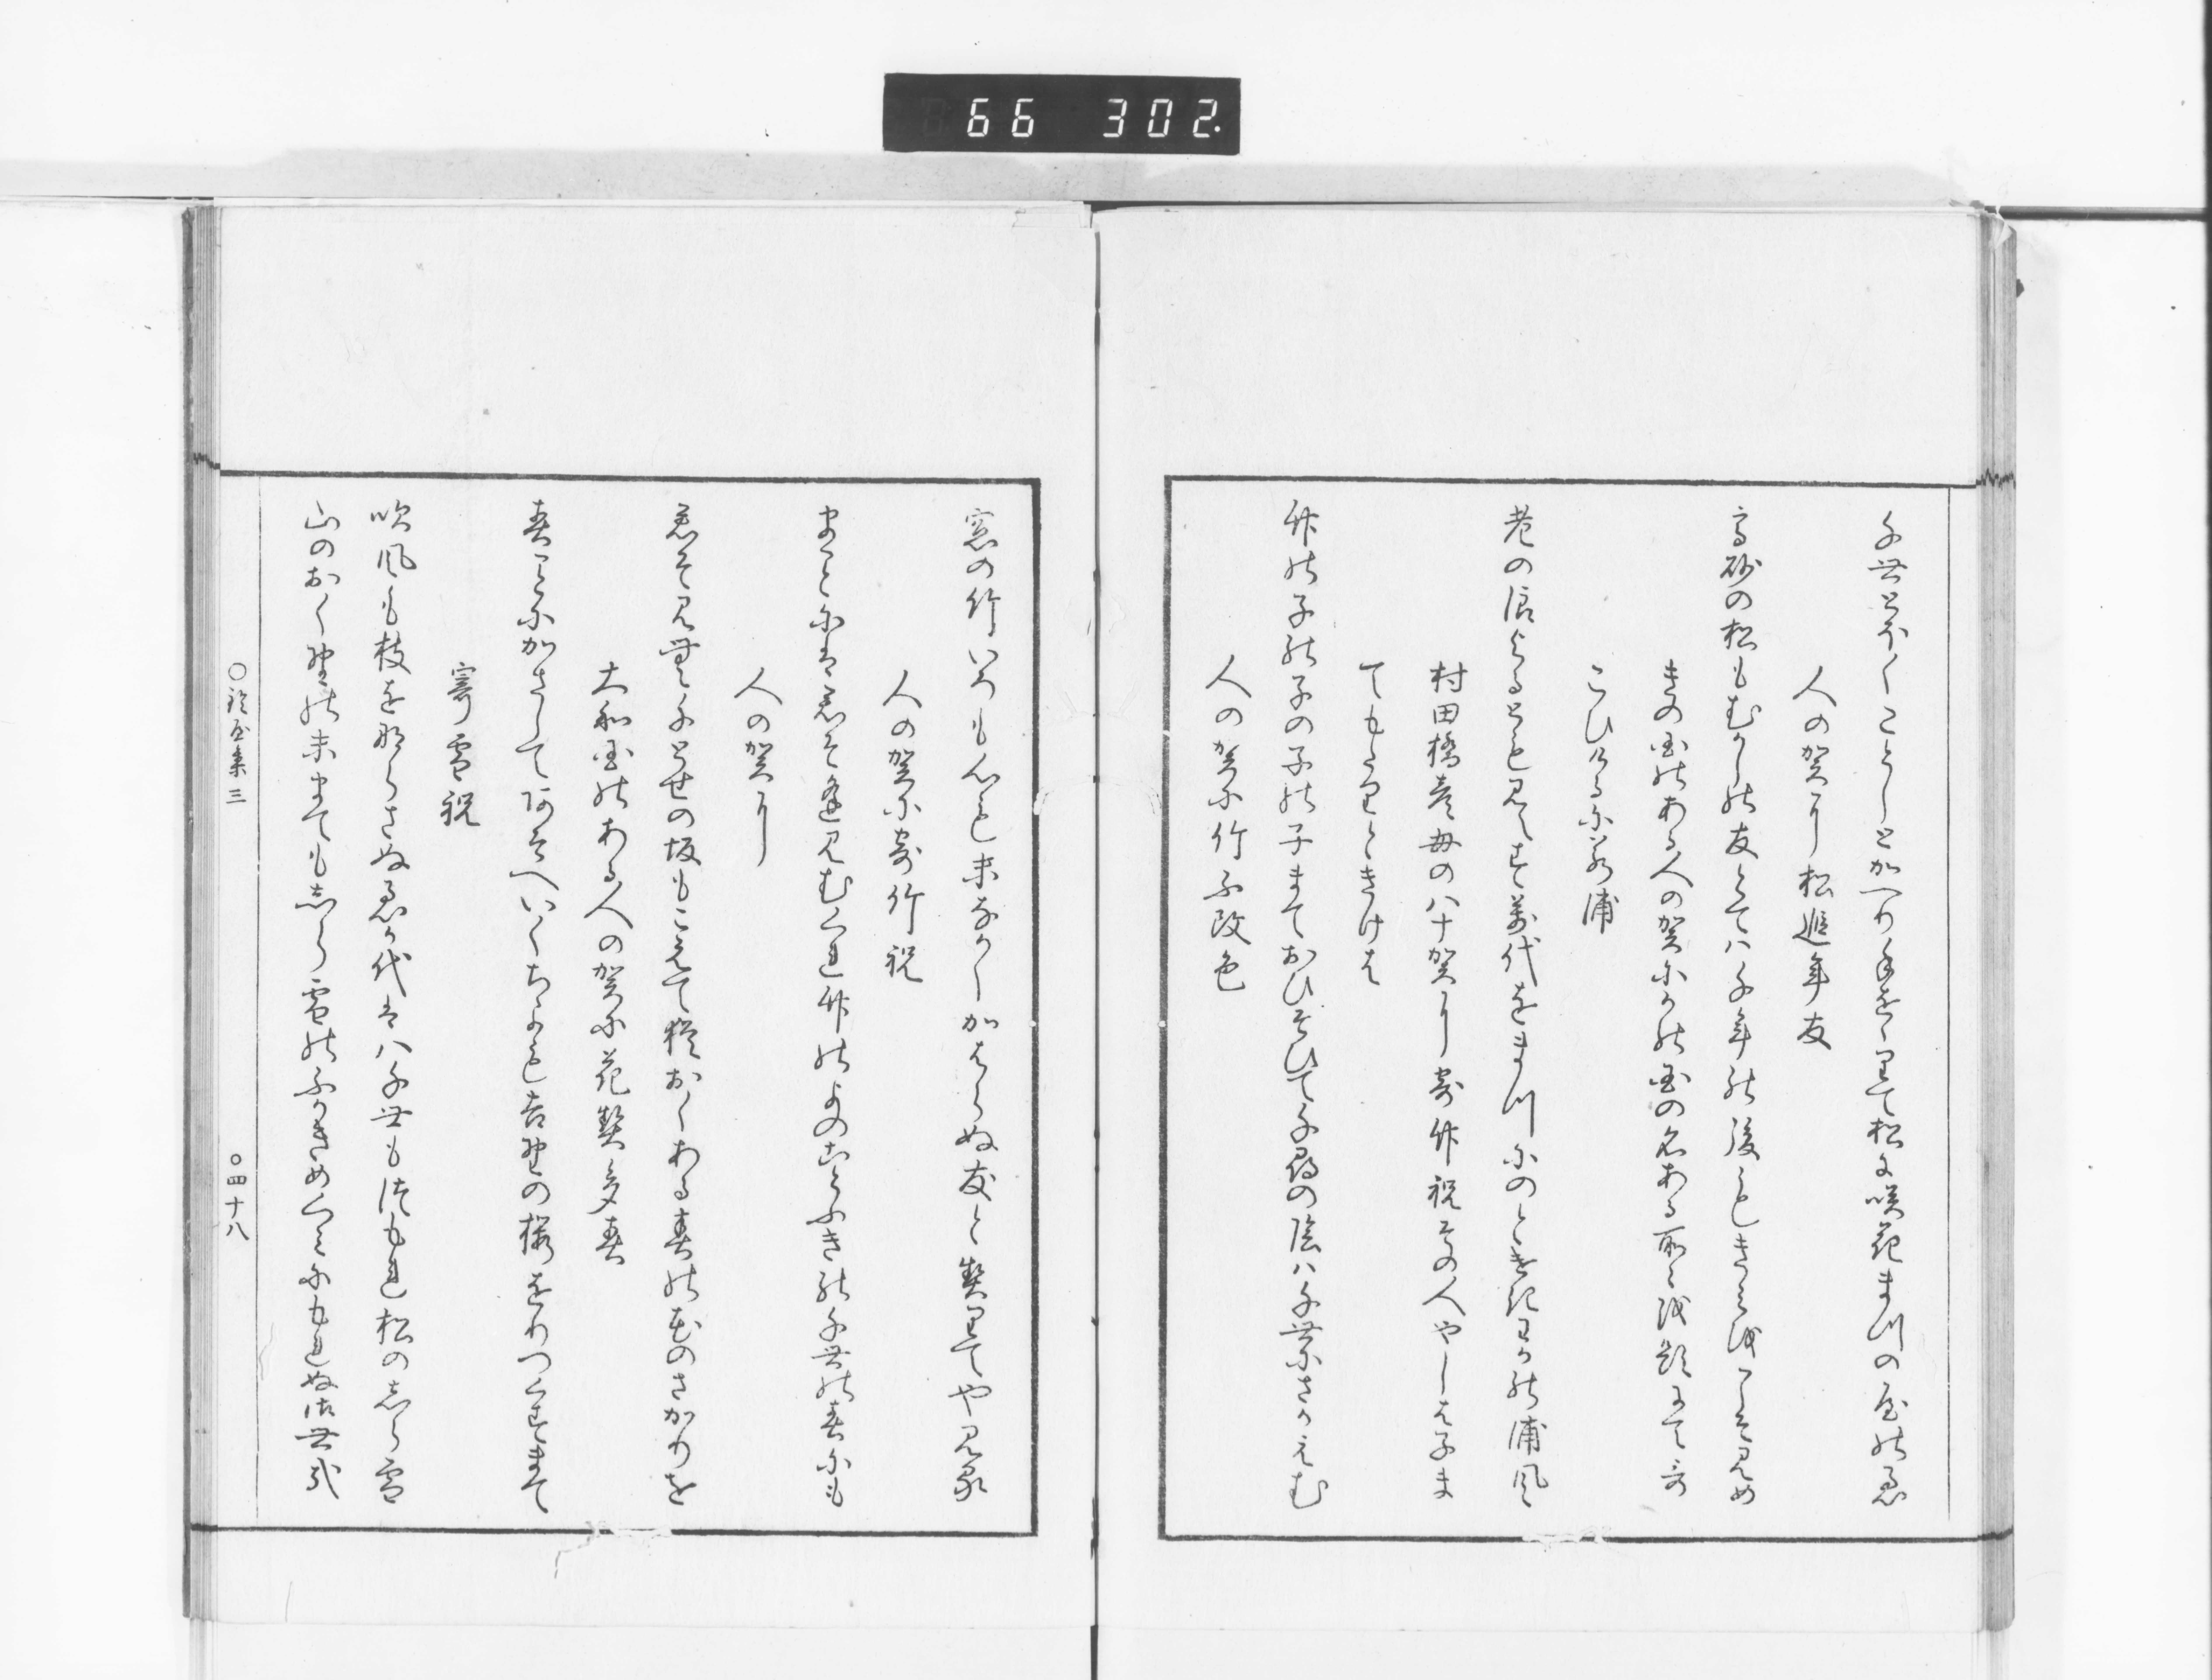 66 302.
千世とふくことしとかへり手をゝりて松に咲花まつの屋のゑ
人の賀に松延年友
高砂の松もむかしの友とては千年の後もしきみをこそ見め
きの国のある人の賀にかの国の名ある所々を題にて哥
こひけるに若浦
老の浪よるとも見えす萬代をまつにのとけきわかの浦風
村田橋彦母の八十賀に寄竹祝その人やしはこま
てもたりときけは
竹の子の子の子の子まておひそひて千尋の陰は千世にさかえむ
人の賀に竹不改色
窓の竹いろも心も末なかくかはらぬ友と契りてや見る
人の賀に寄竹祝
まことには君そ逢見むくれ竹のよのことふきの千世の春にも
人の賀に
君そ見む千とせの坂もこえて猶おくある春の花のさかりを
大和国のある人の賀に花契多春
春ことにかさしてあそへいくちよも吉野の桜をりつくすまて
寄雪祝
吹風も枝をならさぬ君か代は八千世もつもれ松のしら雪
山のおく野の末まてもしら雪のふかきめくみにもれぬ御世哉
○鈴屋集三
○四十八